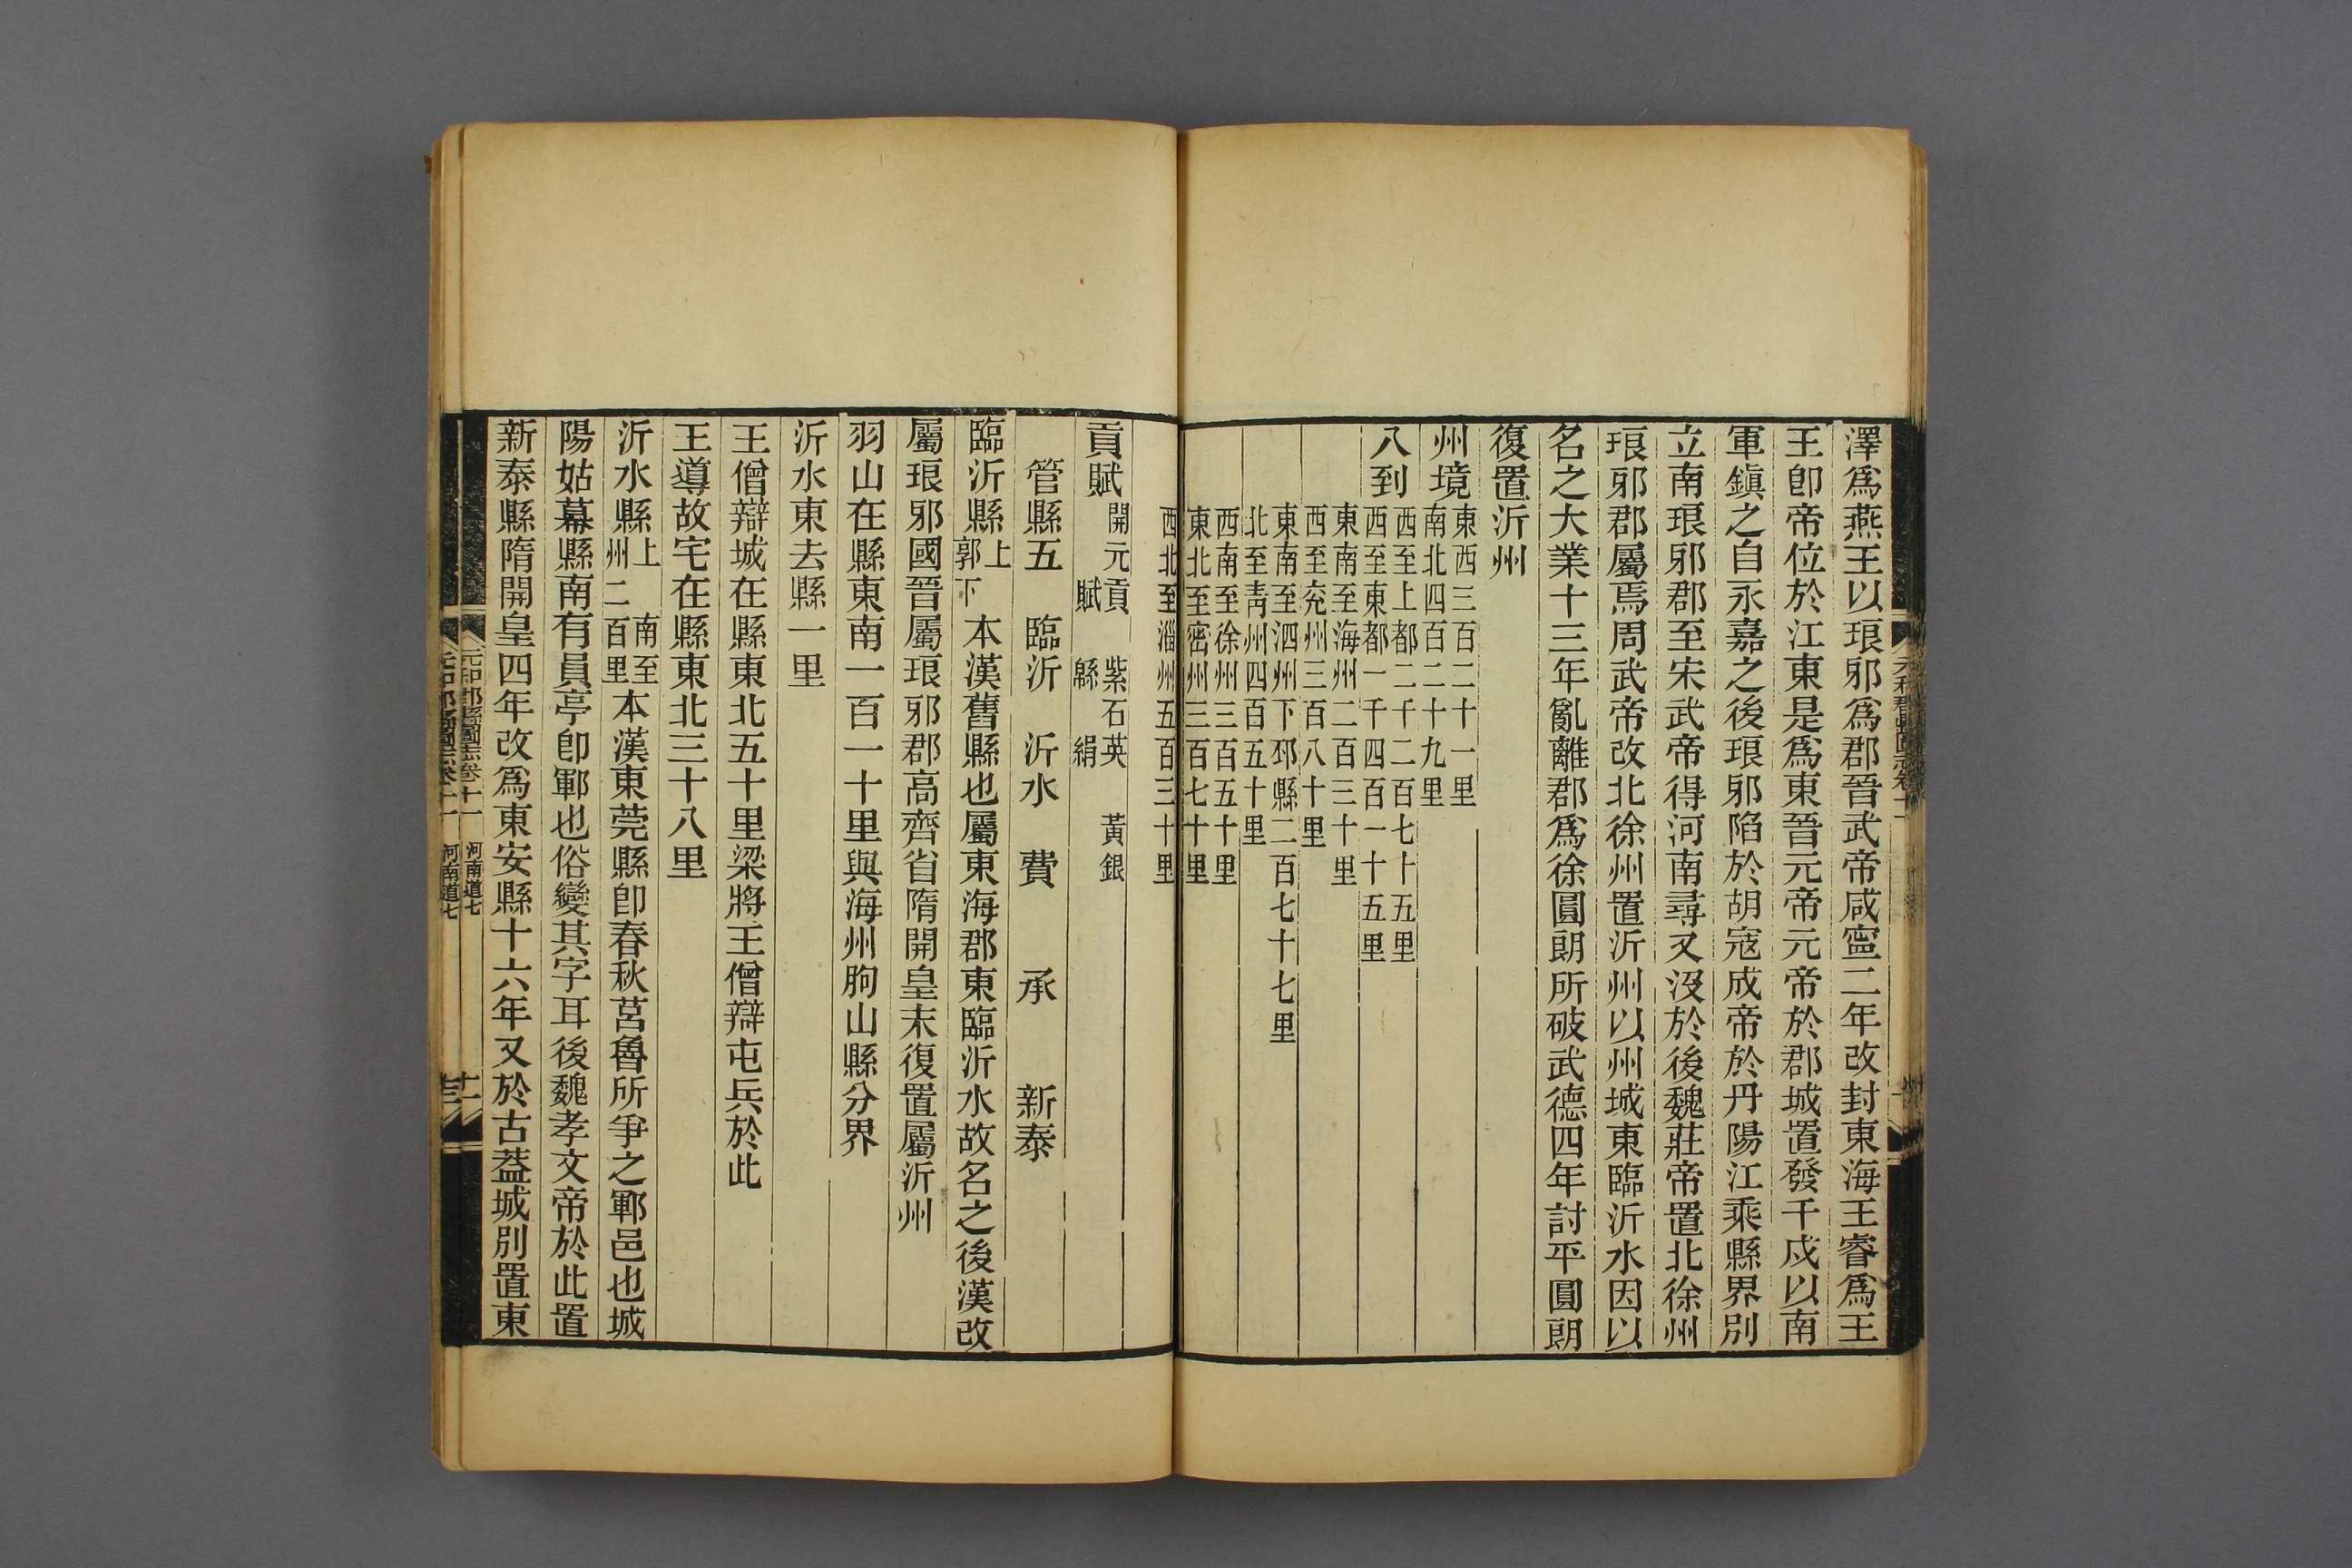 澤爲燕王以琅邪爲郡晉武帝咸寧二年改封東海王睿爲王
王卽帝位於江東是爲東晉元帝元帝於郡城置發干戍以南
軍鎭之自永嘉之後琅邪陷於胡寇成帝於丹陽江乘縣界別
立南琅邪郡至宋武帝得河南尋又沒於後魏莊帝置北徐州
琅邪郡屬焉周武帝改北徐州置沂州以州城東臨沂水因以
名之大業十三年亂離郡爲徐圓朗所破武德四年討平圓朗
復置沂州
州境
東西三百二十一里
南北四百二十九里
八到
西至上都二千二百七十五里
西至東都一千四百一十五里
東南至海州二百三十里
西至兖州三百八十里
東南至泗州下邳縣二百七十七里
北至靑州四百五十里
西南至徐州三百五十里
東北至密州三百七十里
西北至淄州五百三十里
貢賦
開元貢 紫石英 黃銀
賦 緜 絹
管縣五 臨沂 沂水 費 承 新泰
臨沂縣上郭下 本漢舊縣也屬東海郡東臨沂水故名之後漢改
屬琅邪國晉屬琅邪郡高齊省隋開皇末復置屬沂州
羽山在縣東南一百一十里與海州朐山縣分界
沂水東去縣一里
王僧辯城在縣東北五十里梁將王僧辯屯兵於此
王導故宅在縣東北三十八里
沂水縣上 南至州二百里 本漢東莞縣卽春秋莒魯所爭之鄆邑也城
陽姑幕縣南有員亭卽鄆也俗變其字耳後魏孝文帝於此置
新泰縣隋開皇四年改爲東安縣十六年又於古葢城別置東
元和郡縣圖志卷十一 河南道七